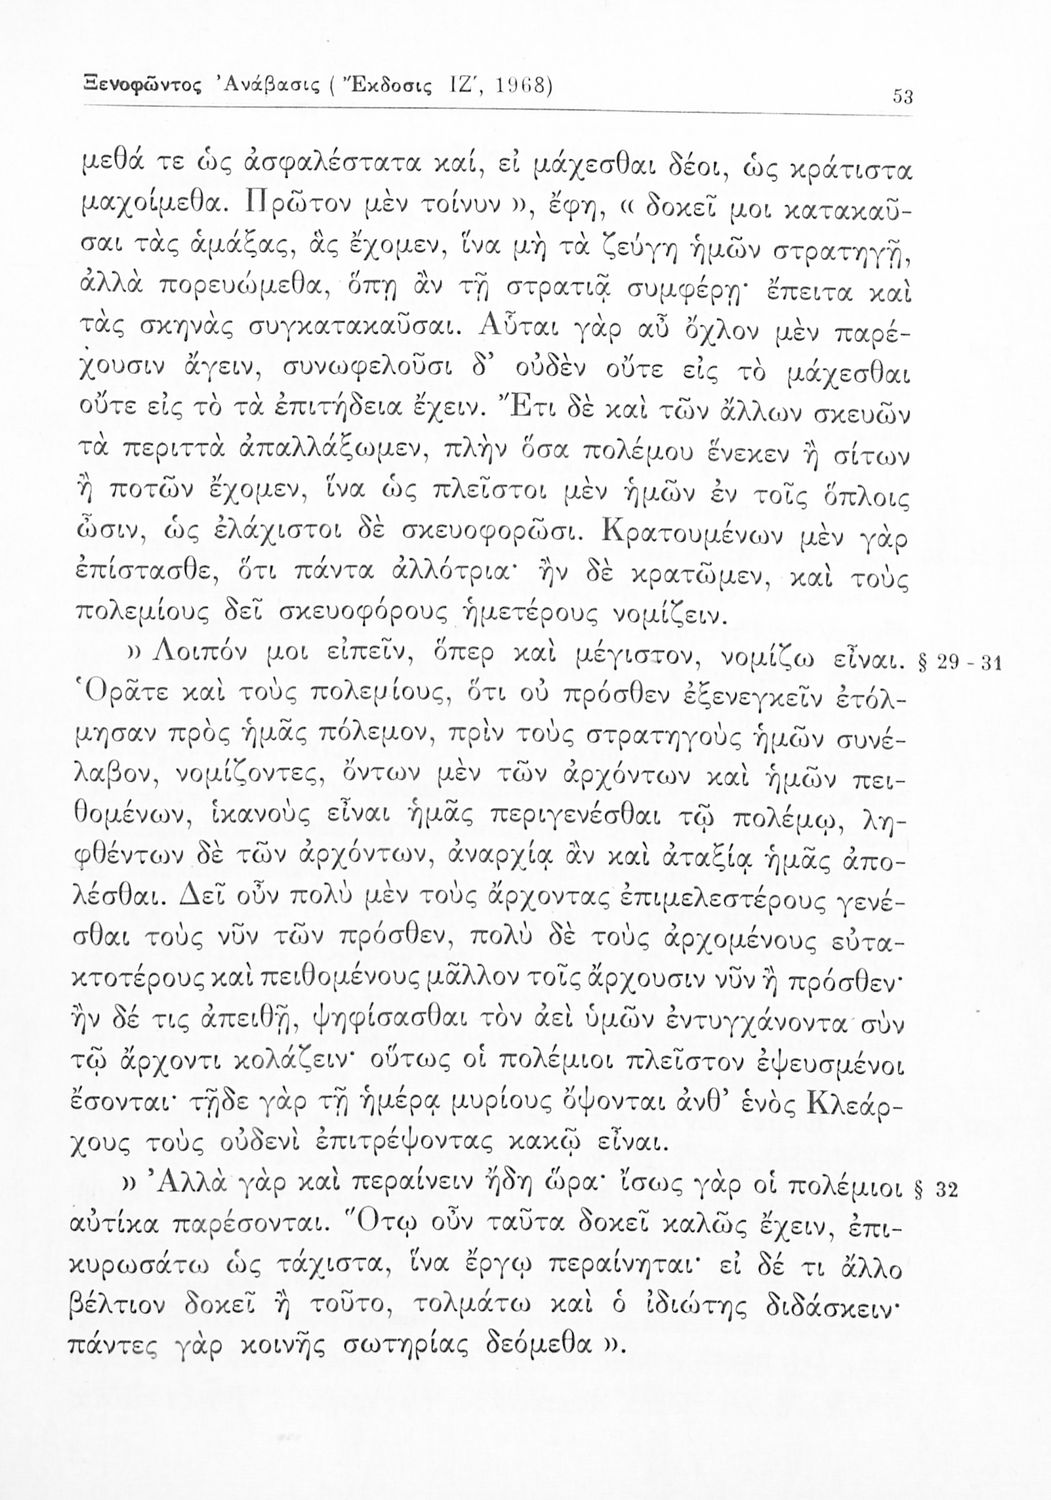 Ξενοφῶντος Ἀνάβασις ( Ἔκδοσις ΙΖ΄, 1968)
53
μεθά τε ὡς ἀσφαλέστατα καί, εἰ μάχεσθαι δέοι, ὡς κράτιστα
μαχοίμεθα. Πρῶτον μὲν τοίνυν », ἔφη, « δοκεῖ μοι κατακαῦ-
σαι τὰς ἁμάξας, ἃς ἔχομεν, ἵνα μὴ τὰ ζεύγη ἡμῶν στρατηγῇ,
ἀλλὰ πορευώμεθα, ὅπῃ ἂν τῇ στρατιᾷ συμφέρῃ· ἔπειτα καὶ
τὰς σκηνὰς συγκατακαῦσαι. Αὗται γὰρ αὖ ὄχλον μὲν παρέ-
χουσιν ἄγειν, συνωφελοῦσι δ’ οὐδὲν οὔτε εἰς τὸ μάχεσθαι
οὔτε εἰς τὸ τὰ ἐπιτήδεια ἔχειν. Ἔτι δὲ καὶ τῶν ἄλλων σκευῶν
τὰ περιττὰ ἀπαλλάξωμεν, πλὴν ὅσα πολέμου ἕνεκεν ἢ σίτων
ἢ ποτῶν ἔχομεν, ἵνα ὡς πλεῖστοι μὲν ἡμῶν ἐν τοῖς ὅπλοις
ὦσιν, ὡς ἐλάχιστοι δὲ σκευοφορῶσι. Κρατουμένων μὲν γὰρ
ἐπίστασθε, ὅτι πάντα ἀλλότρια· ἢν δὲ κρατῶμεν, καὶ τοὺς
πολεμίους δεῖ σκευοφόρους ἡμετέρους νομίζειν.
» Λοιπόν μοι εἰπεῖν, ὅπερ καὶ μέγιστον, νομίζω εἶναι. § 29 - 31
Ὁρᾶτε καὶ τοὺς πολεμίους, ὅτι οὐ πρόσθεν ἐξενεγκεῖν ἐτόλ-
μησαν πρὸς ἡμᾶς πόλεμον, πρὶν τοὺς στρατηγοὺς ἡμῶν συνέ-
λαβον, νομίζοντες, ὄντων μὲν τῶν ἀρχόντων καὶ ἡμῶν πει-
θομένων, ἱκανοὺς εἶναι ἡμᾶς περιγενέσθαι τῷ πολέμῳ, λη-
φθέντων δὲ τῶν ἀρχόντων, ἀναρχίᾳ ἂν καὶ ἀταξίᾳ ἡμᾶς ἀπο-
λέσθαι. Δεῖ οὖν πολὺ μὲν τοὺς ἄρχοντας ἐπιμελεστέρους γενέ-
σθαι τοὺς νῦν τῶν πρόσθεν, πολὺ δὲ τοὺς ἀρχομένους εὐτα-
κτοτέρους καὶ πειθομένους μᾶλλον τοῖς ἄρχουσιν νῦν ἢ πρόσθεν·
ἢν δέ τις ἀπειθῇ, ψηφίσασθαι τὸν ἀεὶ ὑμῶν ἐντυγχάνοντα σὺν
τῷ ἄρχοντι κολάζειν· οὕτως οἱ πολέμιοι πλεῖστον ἐψευσμένοι
ἔσονται· τῇδε γὰρ τῇ ἡμέρᾳ μυρίους ὄψονται ἀνθ’ ἑνὸς Κλεάρ-
χους τοὺς οὐδενὶ ἐπιτρέψοντας κακῷ εἶναι.
» Ἀλλὰ γὰρ καὶ περαίνειν ἤδη ὥρα· ἴσως γὰρ οἱ πολέμιοι § 32
αὐτίκα παρέσονται. Ὅτῳ οὖν ταῦτα δοκεῖ καλῶς ἔχειν, ἐπι-
κυρωσάτω ὡς τάχιστα, ἵνα ἔργῳ περαίνηται· εἰ δέ τι ἄλλο
βέλτιον δοκεῖ ἢ τοῦτο, τολμάτω καὶ ὁ ἰδιώτης διδάσκειν·
πάντες γὰρ κοινῆς σωτηρίας δεόμεθα ».